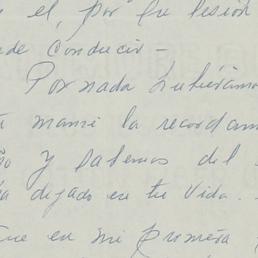 el, por su lesión
de conducir -
Por nada hubiéramos
mami la recordam
y sabemos del
dejado en tu vida.
que en mi primera